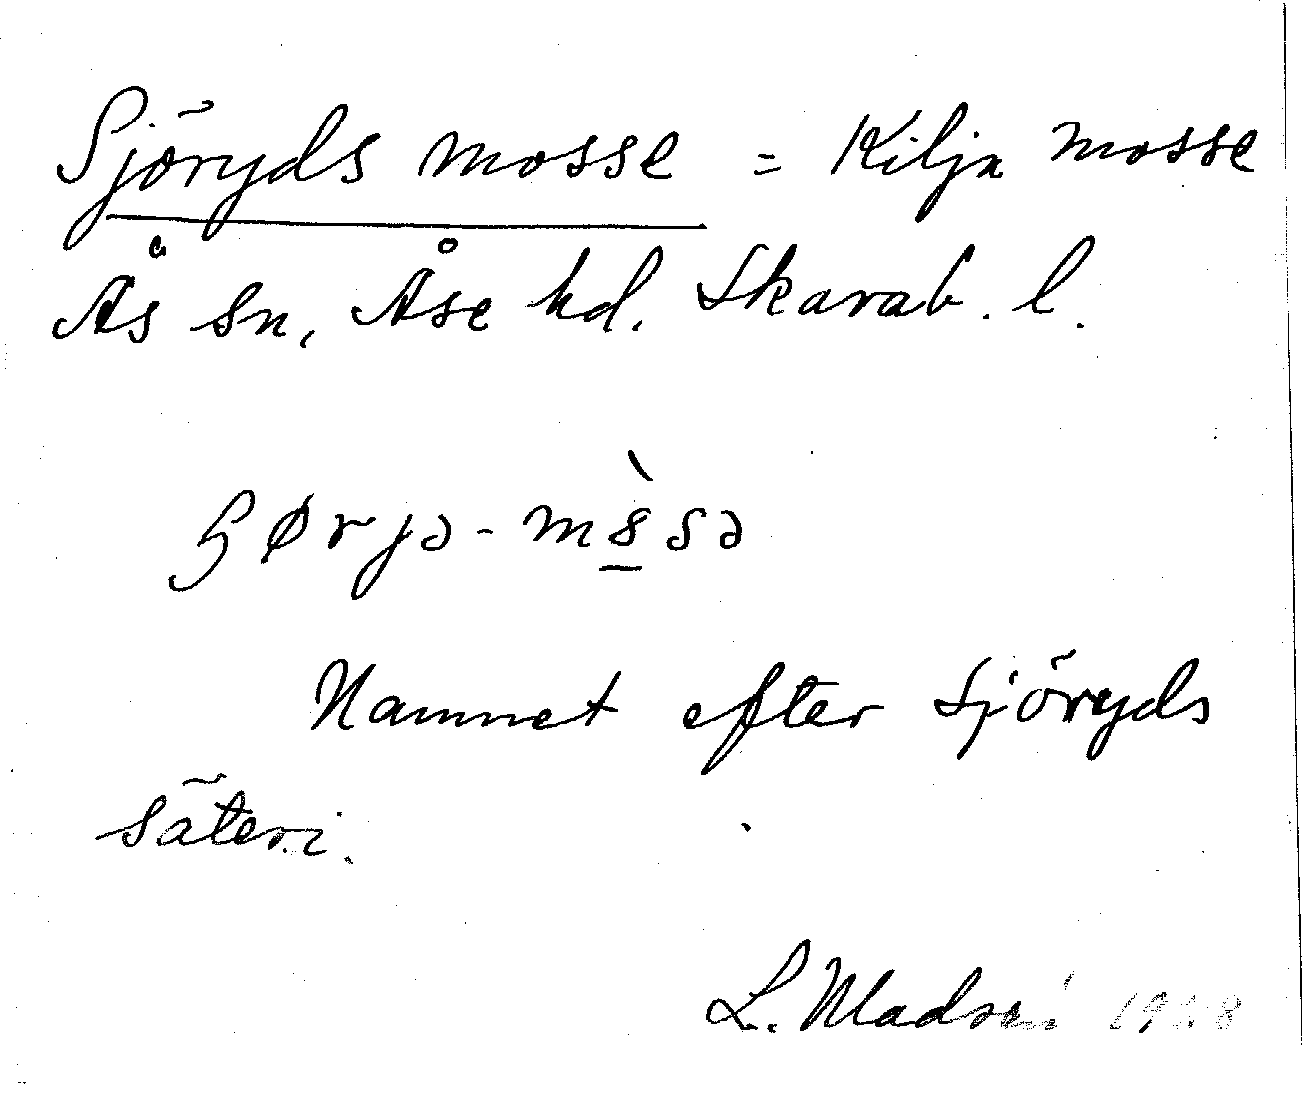 Sjöryds mosse = Kilja mosse
Ås sn, Åse hd. Skarab. l.
ʂørjə-mꞩ̀sə
Namnet efter Sjöryds
säteri.
L. Madsén